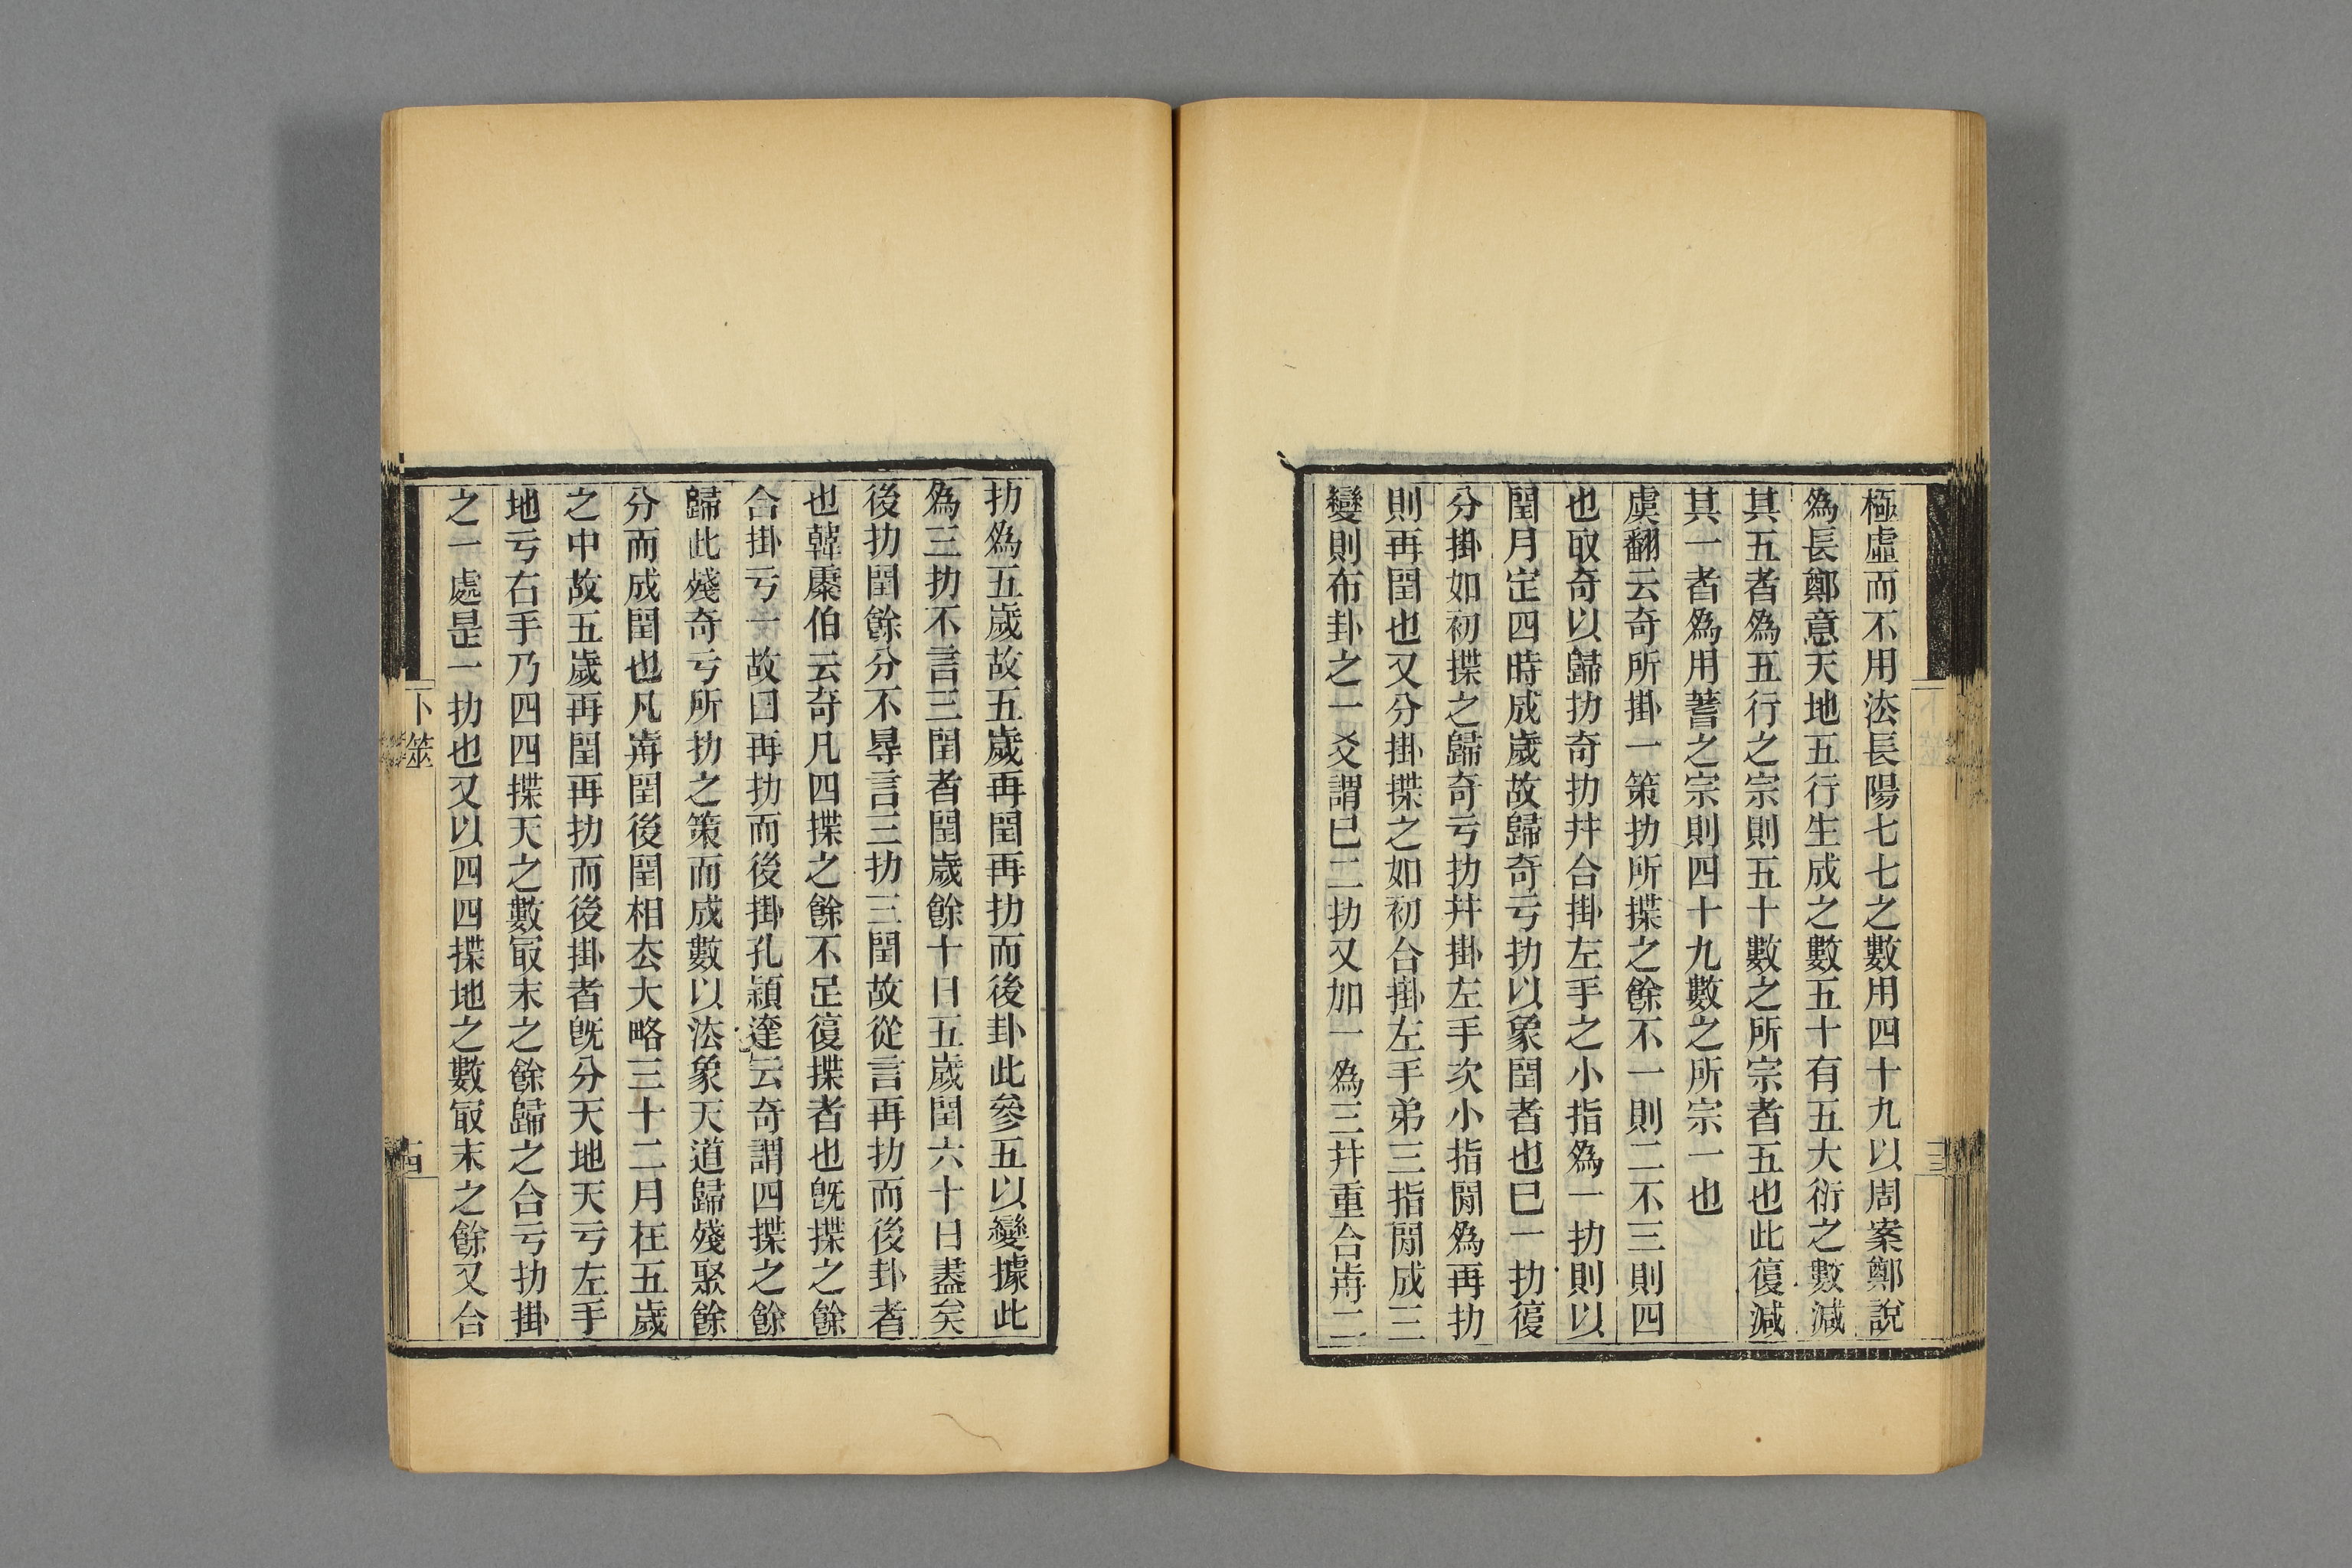 極虛而不用法長陽七七之數用四十九以周案鄭說
爲長鄭意天地五行生成之數五十有五大衍之數減
其五者爲五行之宗則五十數之所宗者五也此復減
其一者爲用蓍之宗則四十九數之所宗一也
虞翻云奇所掛一策扐所揲之餘不一則二不三則四
也取奇以歸扐奇扐并合掛左手之小指爲一扐則以
閏月定四時成歲故歸奇亏扐以象閏者也巳一扐復
分掛如初揲之歸奇亏扐并掛左手次小指閒爲再扐
則再閏也又分掛揲之如初合掛左手弟三指閒成三
變則布卦之一爻謂巳二扐又加一爲三并重合歬二
扐爲五歲故五歲再閏再扐而後卦此參五以變據此
爲三扐不言三閏者閏歲餘十日五歲閏六十日盡矣
後扐閏餘分不㝵言三扐三閏故從言再扐而後卦者
也韓康伯云奇凡四揲之餘不足復揲者也旣揲之餘
合掛亏一故曰再扐而後掛孔穎達云奇謂四揲之餘
歸此殘奇亏所扐之策而成數以法象天道歸殘聚餘
分而成閏也凡歬閏後閏相去大略三十二月在五歲
之中故五歲再閏再扐而後掛者旣分天地天亏左手
地亏右手乃四四揲天之數冣末之餘歸之合亏扐掛
之一處是一扐也又以四四揲地之數冣末之餘又合
卜筮
十四